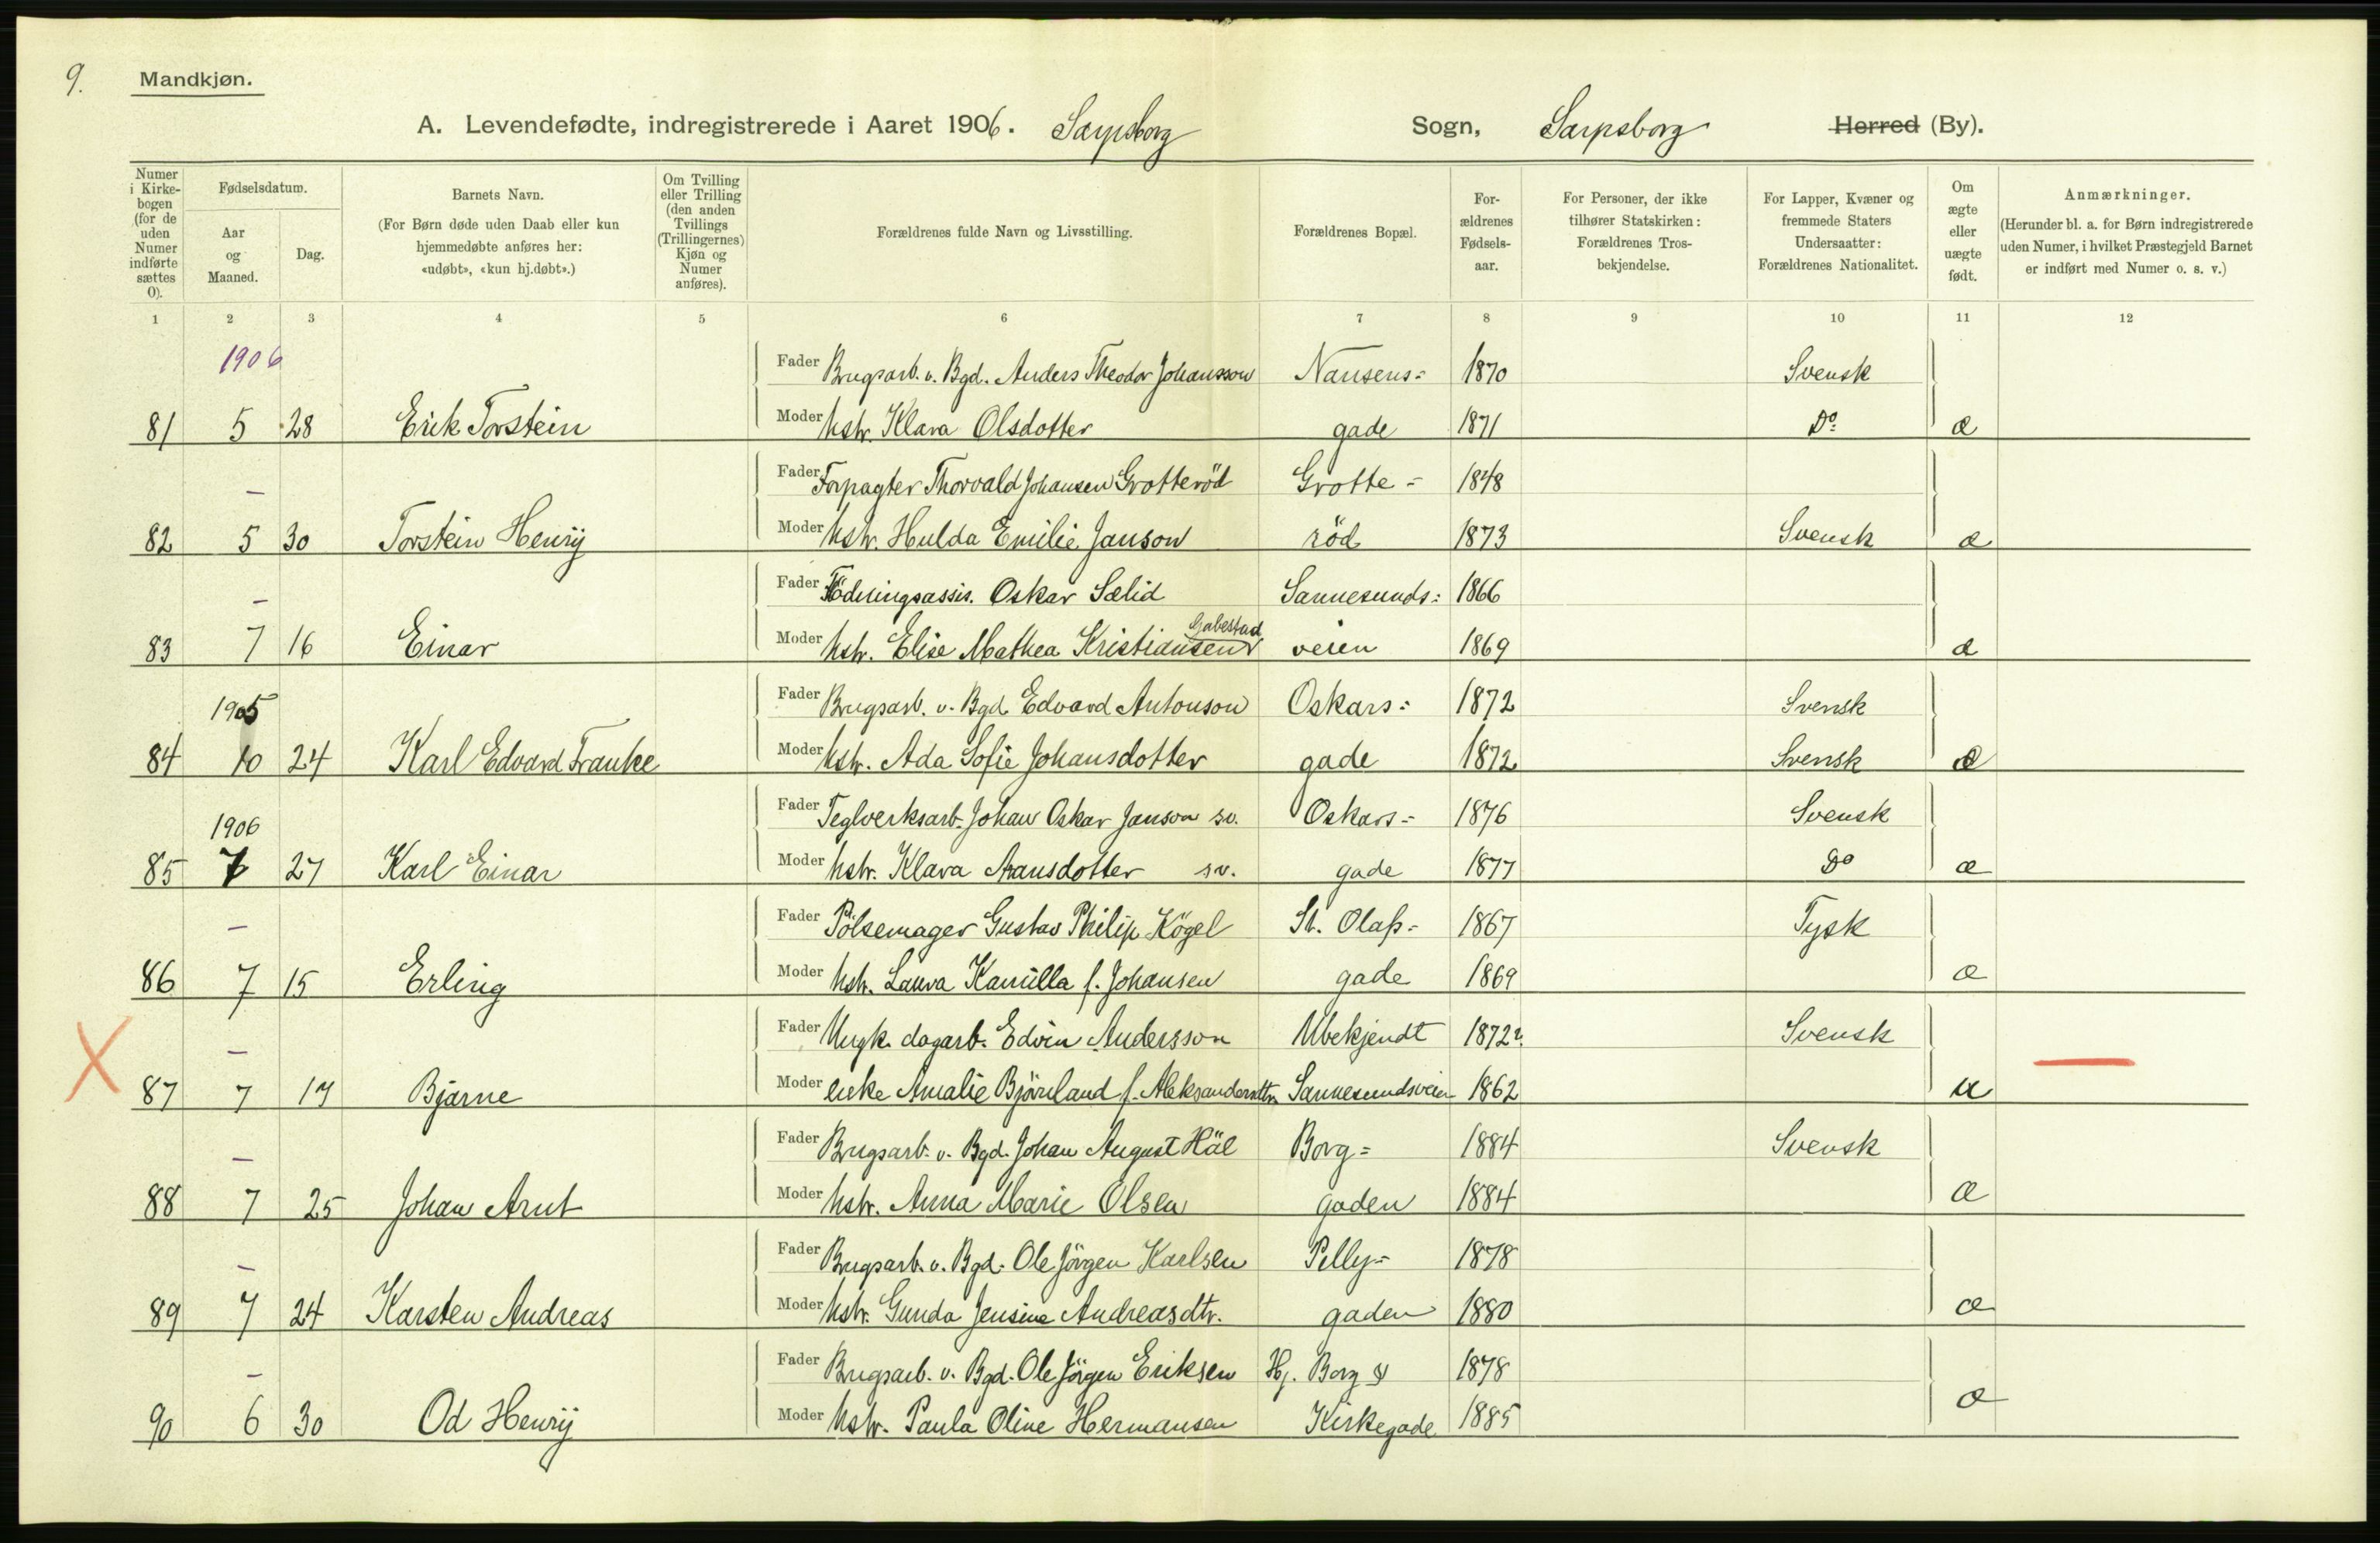 9.
Mandkjøn.
A. Levendefødte, indregistrerede i Aaret 1906. Sarpsborg Sogn, Sarpsborg Herred (By).
Numer i Kirke-bogen (for de uden Numer indførte sættes 0).
Fødselsdatum.
Aar og Maaned.
Dag.
Barnets Navn.
(For Børn døde uden Daab eller kun hjemmedøbte anføres her: «udøbt», «kun hj.døbt».)
Om Tvilling eller Trilling (den anden Tvillings (Trillingernes) Kjøn og Numer anføres).
Forældrenes fulde Navn og Livsstilling.
Forældrenes Bopæl.
For-ældrenes Fødsels-aar.
For Personer, der ikke tilhører Statskirken: Forældrenes Tros-bekjendelse.
For Lapper, Kvæner og fremmede Staters Undersaatter: Forældrenes Nationalitet.
Om ægte eller uægte født.
Anmærkninger.
(Herunder bl. a. for Børn indregistrerede uden Numer, i hvilket Præstegjeld Barnet er indført med Numer o. s. v.)
1 2 3 4 5 6 7 8 9 10 11 12
1906 Fader Brugsarb. v. Bgd. Anders Theodor Johansson Nansens= 1870 Svensk
81 5 28 Erik Torstein Moder Hstr. Klara Olsdotter gade 1871 Do æ
— Fader Forpagter Thorvald Johansen Grotteröd Grotte= 1848
82 5 30 Torstein Henrij Moder Hstr. Hulda Emilie Janson röd 1873 Svensk æ
— Fader Oskar Sælid Sannesunds= 1866
Gabestad
83 7 16 Einar Moder Hstr. Elise Mathea Kristiansen veien 1869 æ
1905 Fader Brugsarb. v. Bgd. Edvard Antonson Oskars= 1872 Svensk
84 10 24 Karl Edvard Franke Moder Hstr. Ada Sofie Johansdotter gade 1872 Svensk æ
1906 Fader Teglverksarb. Johan Oskar Janson sv. Oskars= 1876 Svensk
85 7 27 Karl Einar Moder Hstr. Klara Aransdotter sv. gade 1877 Do æ
— Fader Pölsemager Gustav Philip Kögel St. Olafs= 1867 Tysk
86 7 15 Erling Moder Hstr. Laura Kamilla f. Johansen gade 1869 æ
— Fader Ungk. dagarb. Edvin Andersson Ubekjendt 1872? Svensk
X 87 7 17 Bjarne Moder enke Amalie Björnland f. Aleksandersdtr. Sannesundsveien 1862 u —
— Fader Brugsarb. v. Bgd. Johan August Häl Borg= 1884 Svensk
88 7 25 Johan Arnt Moder Hstr. Anna Marie Olsen gaden 1884 æ
— Fader Brugsarb. v. Bgd. Ole Jörgen Karlsen Pelly= 1878
89 7 24 Karsten Andreas Moder Hstr. Gunda Jensine Andreasdtr. gaden 1880 æ
— Fader Brugsarb. v. Bgd. Ole Jörgen Eriksen Hj. Borg & 1878
90 6 30 Od Henrij Moder Hstr. Paula Oline Hermansen Kirkegade 1885 æ